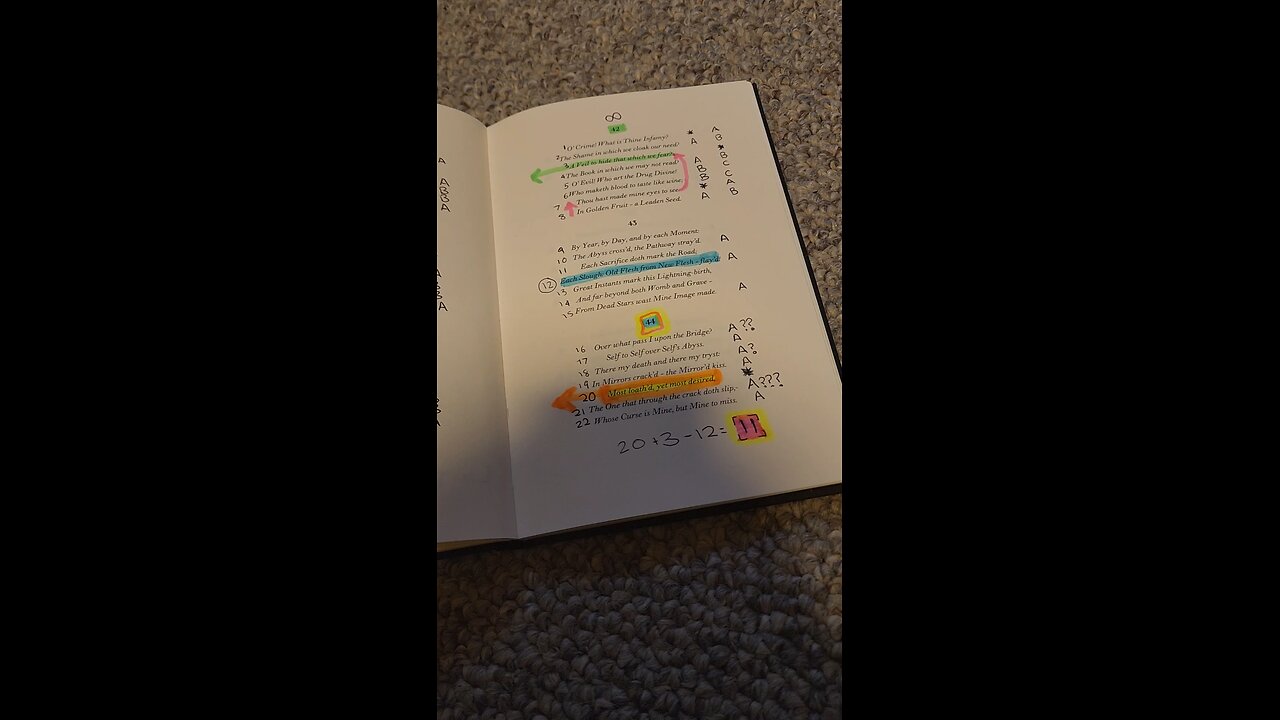 ∞
42
1 O' Crime! What is Thine Infamy? * A
2 The Shame in which we cloak our need? A B
3 A Veil to hide that which we fear? *
4 The Book in which we may not read? A B
5 O' Evil! Who art the Drug Divine? B C
6 Who maketh blood to taste like wine, B C
7 Thou hast made mine eyes to see * A
8 In Golden Fruit - a Leaden Seed. A B
43
9 By Year, by Day, and by each Moment:
10 The Abyss cross'd, the Pathway stray'd. A
11 Each Sacrifice doth mark the Road;
12 Each Slough: Old Flesh from New Flesh - flay'd. A
13 Great Instants mark this Lightning-birth,
14 And far beyond both Womb and Grave -
15 From Dead Stars wast Mine Image made. A
44
16 Over what pass I upon the Bridge? A ??
17 Self to Self over Self's Abyss. A
18 There my death and there my tryst: A?
19 In Mirrors crack'd - the Mirror'd kiss. A
20 Most loath'd, yet most desired, *
21 The One that through the crack doth slip,- A???
22 Whose Curse is Mine, but Mine to miss. A
20+3-12= 11
A
A
B
B
A